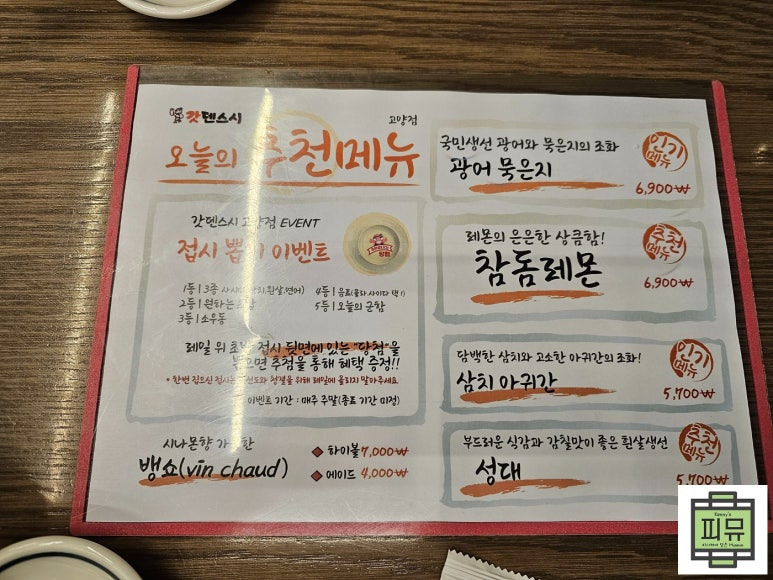 갓덴스시
고양점
오늘의 추천메뉴
갓덴스시 고양점 EVENT
접시 뽑기 이벤트
당첨
1등 | 3종
2등 | 원하는
3등 | 소우동
4등 | 음료(콜라,사이다 택1)
5등 | 오늘의 군함
레일 위 초밥 접시 뒷면에 있는 "당첨"을
뽑으면 추첨을 통해 혜택 증정!!
* 한번 집으신 접시는 선도와 청결을 위해 레일에 올리지 말아주세요.
이벤트 기간 : 매주 주말(종료 기간 미정)
시나몬향 가득한
뱅쇼(vin chaud)
하이볼 7,000₩
에이드 4,000₩
국민생선 광어와 묵은지의 조화
광어 묵은지
인기메뉴
6,900₩
레몬의 은은한 상큼함!
참돔레몬
추천메뉴
6,900₩
담백한 삼치와 고소한 아귀간의 조화!
삼치 아귀간
인기메뉴
5,700₩
부드러운 식감과 감칠맛이 좋은 흰살생선
성대
추천메뉴
5,700₩
피뮤